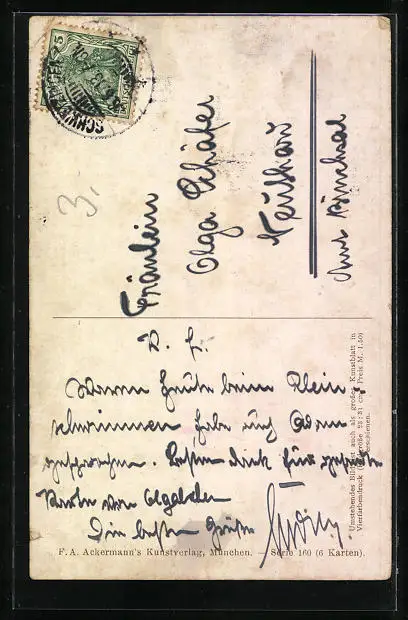 5
SCHWETZINGEN
3.
Fräulein
Olga Schäfer
Neuthard
Amt Bruchsal
L. O.
Waren heute beim Klein
schwimmen habe mich
. Besten Dank für
Karte von Olgalchen
Die besten Grüße
Umstehendes Bild ist auch als großes Kunstblatt in
Vierfarbendruck (Bildgröße 23:31 cm, Preis M. 1.50)
erschienen.
F. A. Ackermann's Kunstverlag, München. — Serie 160 (6 Karten).